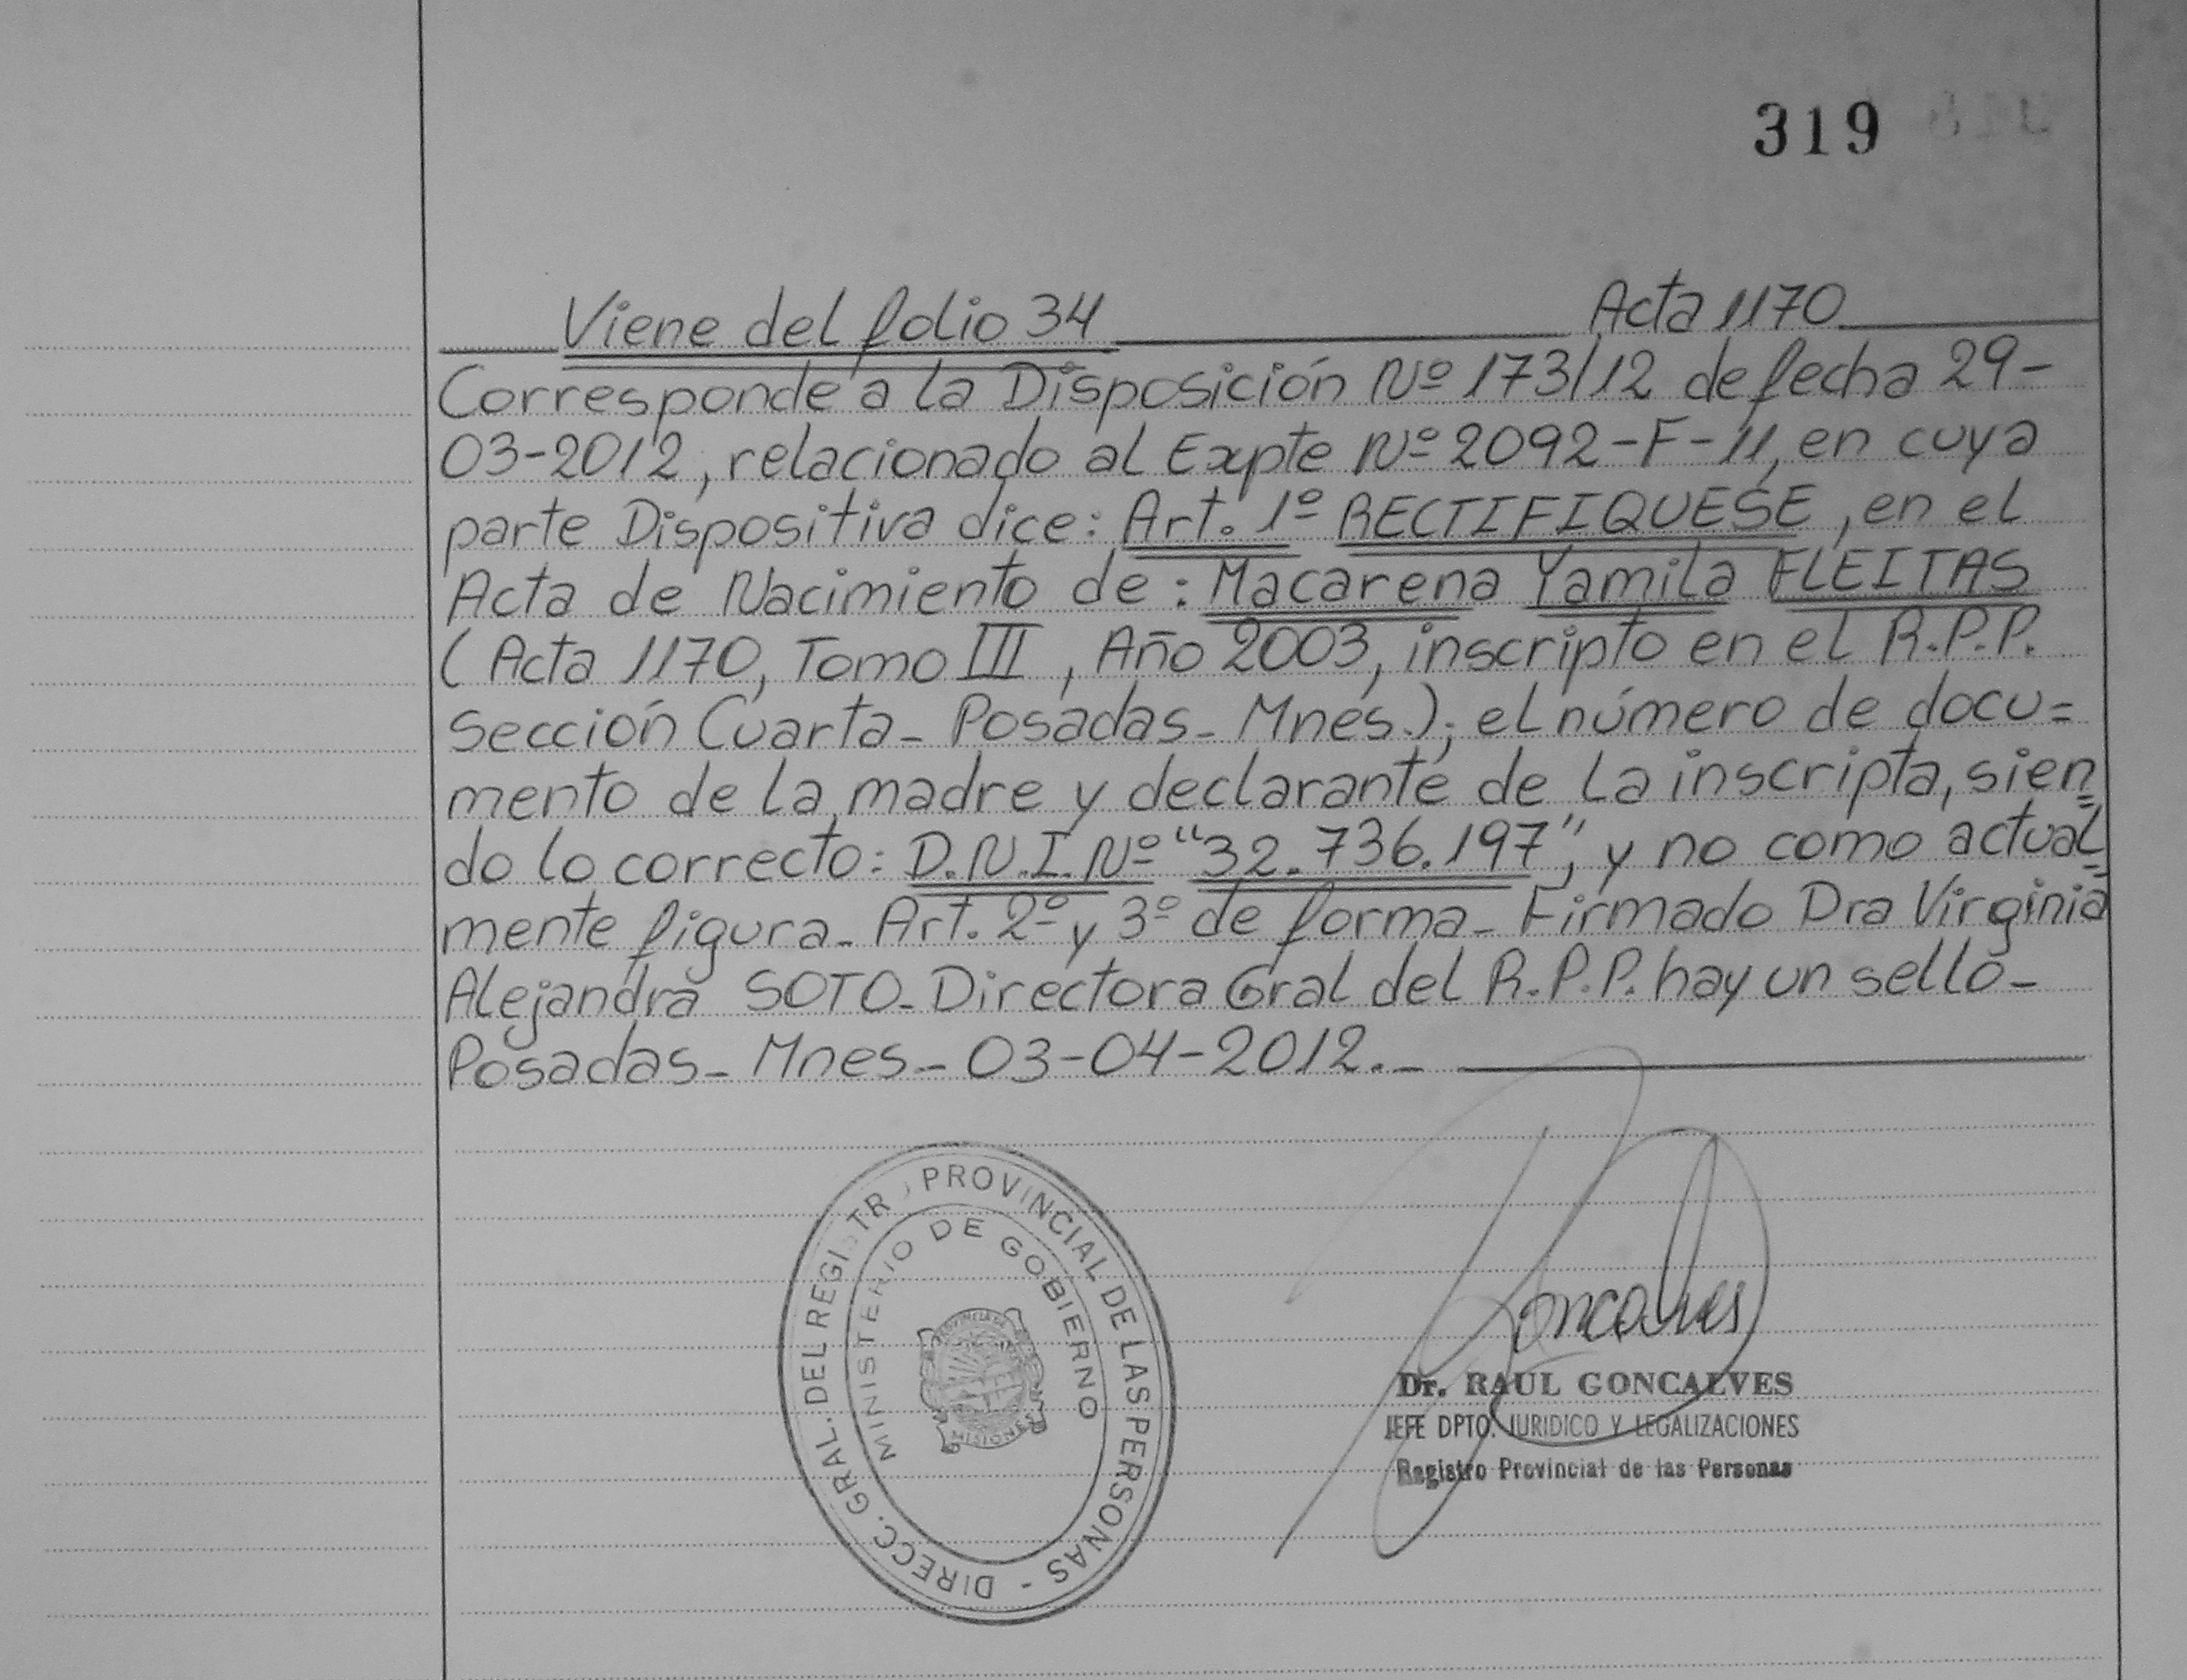 319
Viene del folio 34 Acta 1170
Corresponde a la Disposición Nº 173/12 de fecha 29-
03-2012, relacionado al Expte Nº 2092-F-11, en cuya
parte Dispositiva dice: Art. 1º RECTIFIQUESE, en el
Acta de Nacimiento de: Macarena Yamila FLEITAS
(Acta 1170, Tomo III, Año 2003, inscripto en el R.P.P.
Sección Cuarta_ Posadas_ Mnes.); el número de docu=
mento de la madre y declarante de la inscripta, sien=
do lo correcto: D.N.I. Nº "32.736.197", y no como actual=
mente figura_ Art. 2º y 3º de forma_ Firmado Dra Virginia
Alejandra SOTO_ Directora Gral del R.P.P. hay un sello_
Posadas_ Mnes_ 03-04-2012._
DIRECC. GRAL. DEL REGISTR PROVINCIAL DE LAS PERSONAS -
MINISTERIO DE GOBIERNO
MISIONES
Goncalves
Dr. RAUL GONCALVES
JEFE DPTO. JURIDICO Y LEGALIZACIONES
Registro Provincial de las Personas